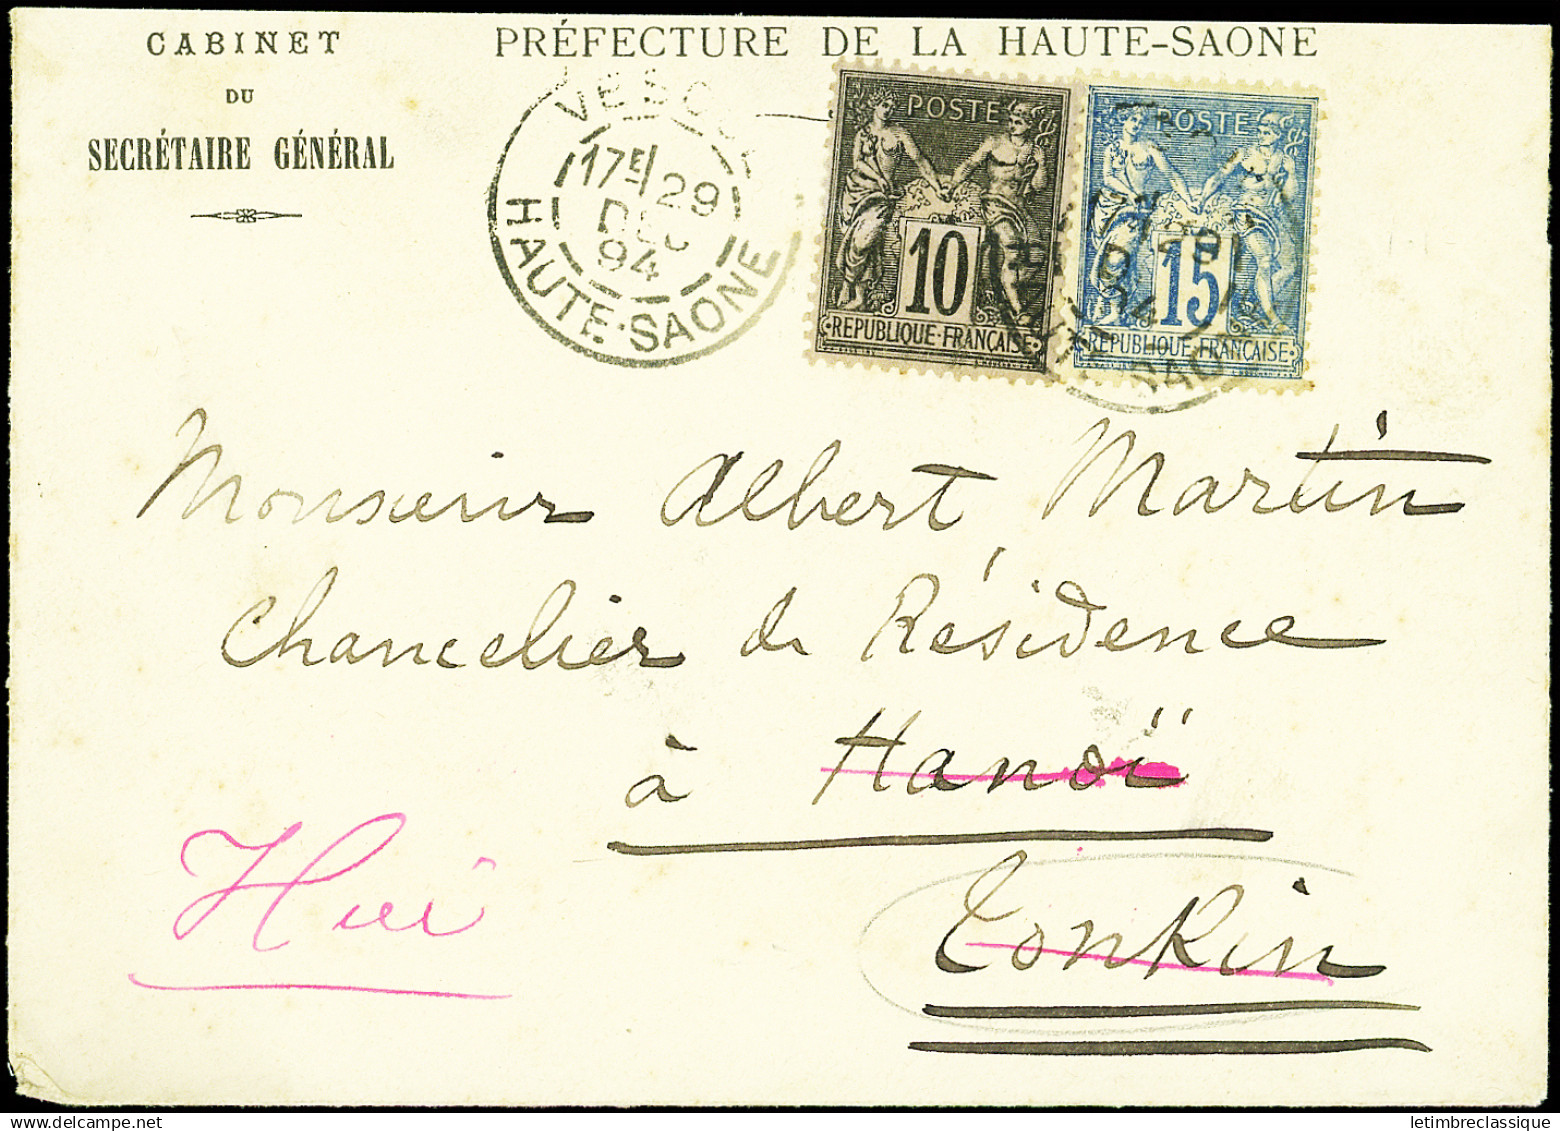 CABINET
DU
SECRÉTAIRE GÉNÉRAL
PRÉFECTURE DE LA HAUTE-SAONE
17E 29
94
HAUTE-SAONE
POSTE
10
REPUBLIQUE·FRANÇAISE
POSTE
15
REPUBLIQUE·FRANÇAISE
Monsieur Albert Martin
Chancelier de Résidence
à Hanoï
Hué
Tonkin
letimbreclassique